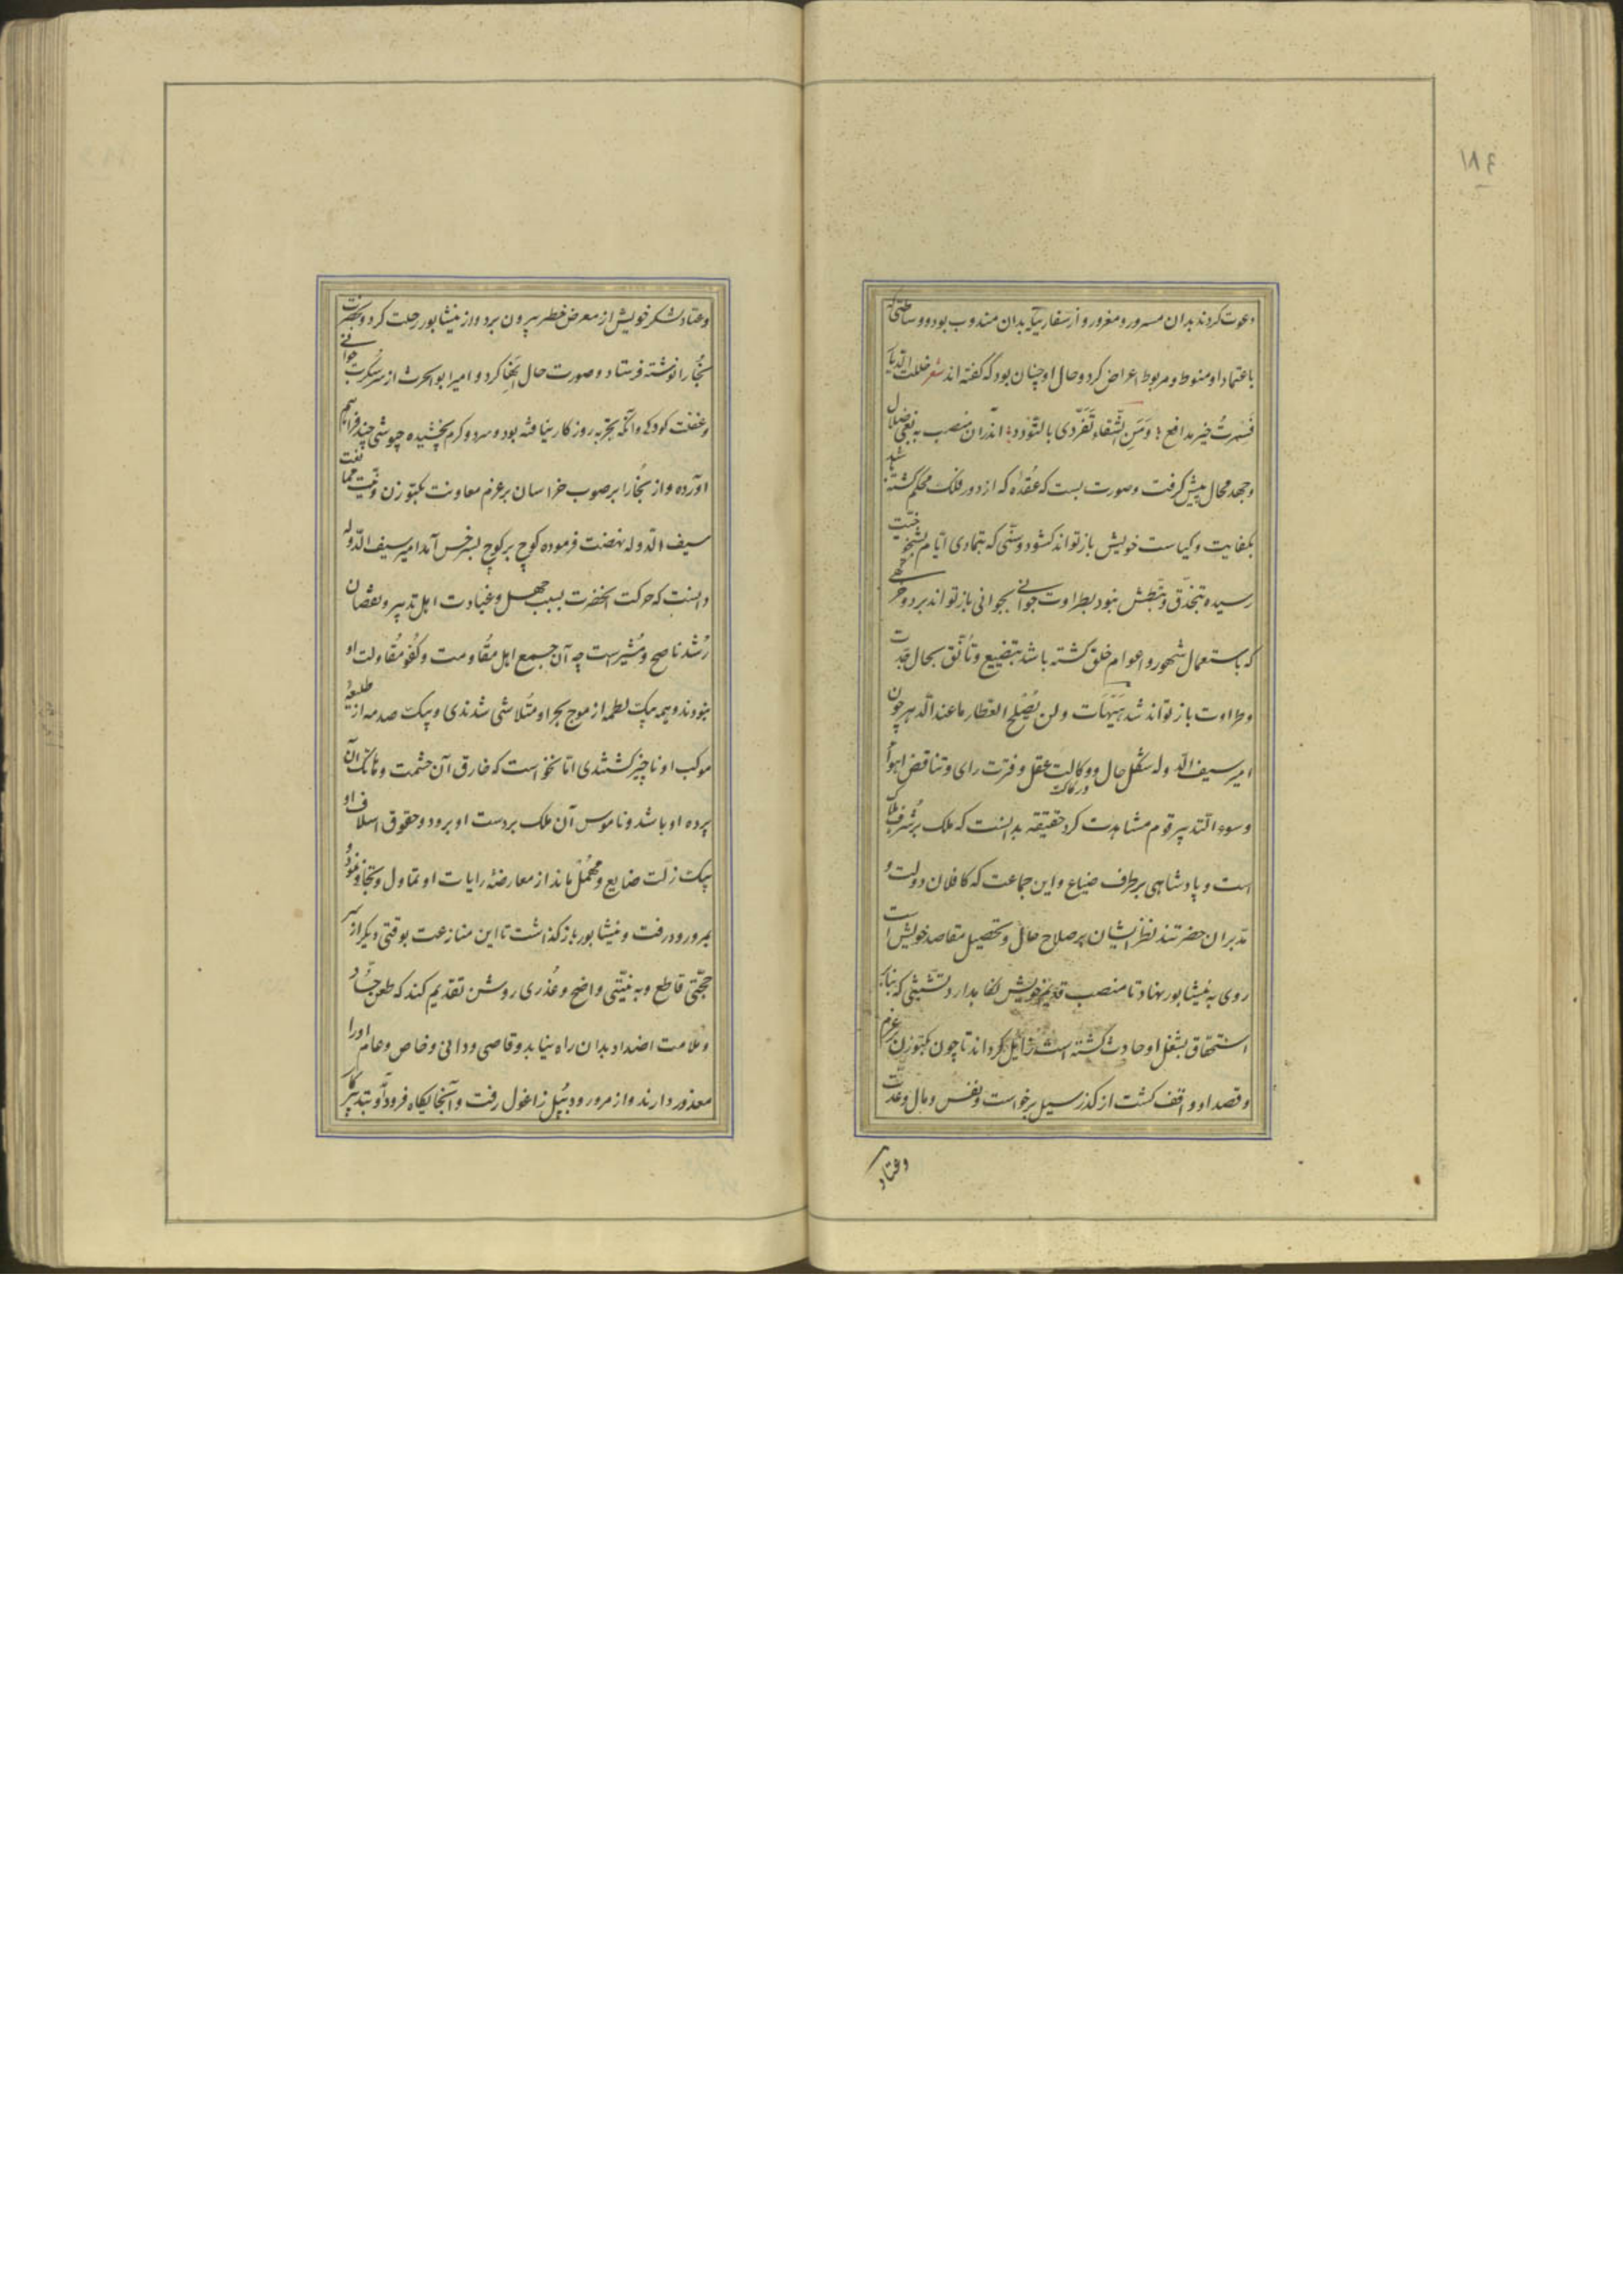 ١٨٤
دعوت کردند بدان مسرور و مغرور و از سفارتی که بدان مندوب بود و وساطتی که
باعتماد او منوط و مربوط اعراض کرد و حال او چنان بود که گفته اند شعر خلت الدیار
فسدت خیر مدافع و من الشقاء تفردی بالسودد اندران منصب به نفی ضلال
و جهد محال پیش گرفت و صورت بست که عقده که از دور فلک محکم گشته باشد
بکفایت و کیاست خویش باز تواند گشود و سنی که بتمادی ایام بشیخوخیت
رسیده بتحذق و تبطش نبود بطراوت جوانی بجوانی باز تواند برد و خرقهٔ
که باستعمال شهور و اعوام خلق گشته باشد بتضییع و تأنق بحال جدت
و طراوت باز تواند شد هیهات و لن یصلح العطار ما عند الدهر چون
امیر سیف الدوله شکل حال و وکالت عقل و فترت رای و تناقض اهواء
ورکاکت
و سوء التدبیر قوم مشاهدت کرد حقیقة بدانست که ملک بر شرف هلاک
است و پادشاهی بر طرف ضیاع و این جماعت که کافلان دولت و
مدبران حضرتند نظر ایشان بر صلاح حال و تحصیل مقاصد خویش است
روی به نیشابور نهاد تا منصب قدیم خویش نگاه بدارد و تشبثی که بنا بر
استحقاق بشغل او حادث گشته است زایل گرداند تا چون بکتوزن بر عزم
و قصد او واقف گشت از گذر سیل برخواست و نفس و مال و عدت
وعتاد
وعتاد لشکر خویش از معرض خطر بیرون برد و از نیشابور رحلت کرد و بحضرت
بخارا نوشته فرستاد و صورت حال انها کرد و امیر ابو الحرث از سر سکرت جوانی
و غفلت کودکی و آنکه بتجربه روزگار نیافته بود و سرد و گرم نچشیده جیوشی چند فراهم
آورده و از بخارا بر صوب خراسان بر عزم معاونت بکتوزن و نیت ممانعت
سیف الدوله نهضت فرموده کوچ بر کوچ بسرخس آمد امیر سیف الدوله
دانست که حرکت آنحضرت بسبب جهل و غباوت اهل تدبیر و نقصان
رشد ناصح و مشیر است چه آن جمع اهل مقاومت و کفو مقاولت او
نبودند و همه بیک لطمه از موج بحر او متلاشی شدندی و بیک صدمه از طلیعهٔ
موکب او ناچیز گشتندی اما نخواست که خارق آن حشمت و هاتک آن
پرده او باشد و ناموس آن ملک بر دست او برود و حقوق اسلاف او
بیک زلت ضایع و مهمل ماند از معارضهٔ رایات او تماول و تجاوز نمود و
بمرورود رفت و نیشابور باز گذاشت تا این منازعت بوقتی دیگر از سر
حجتی قاطع و به نیتی واضح و عذری روشن تقدیم کند که طعن حساد
و علامت اضداد بدان راه نیابد و قاصی و دانی و خاص و عام او را
معذور دارند و از مرورود بپل زاغول رفت و آنجایگاه فرود آمد و بتدبیر کار